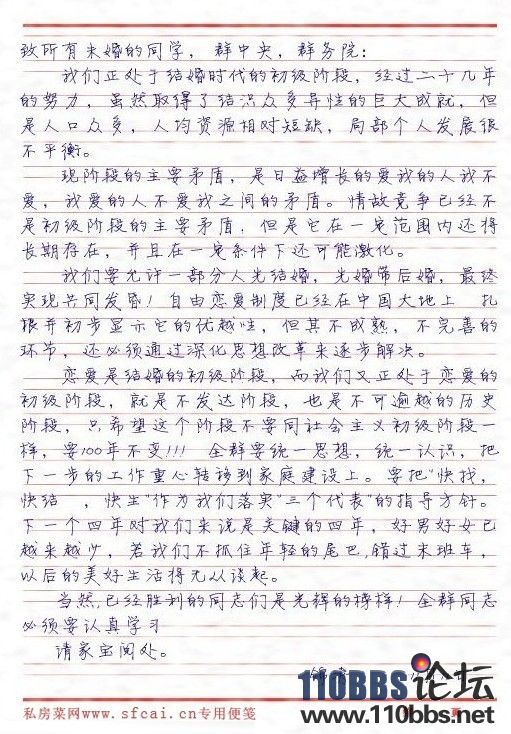 致所有未婚的同学，群中央，群务院：
我们正处于结婚时代的初级阶段，经过二十九年
的努力，虽然取得了结识众多异性的巨大成就，但
是人口众多，人均资源相对短缺，局部个人发展很
不平衡。
现阶段的主要矛盾，是日益增长的爱我的人我不
爱，我爱的人不爱我之间的矛盾。情敌竞争已经不
是初级阶段的主要矛盾，但是它在一定范围内还将
长期存在，并且在一定条件下还可能激化。
我们要允许一部分人先结婚，先婚带后婚，最终
实现共同发昏！自由恋爱制度已经在中国大地上 扎
根并初步显示它的优越性，但其不成熟，不完善的
环节，还必须通过深化思想改革来逐步解决。
恋爱是结婚的初级阶段，而我们又正处于恋爱的
初级阶段，就是不发达阶段，也是不可逾越的历史
阶段，只希望这个阶段不要同社会主义初级阶段一
样，要100年不变!!! 全群要统一思想，统一认识，把
下一步的工作重心转移到家庭建设上。要把"快找，
快结 ，快生"作为我们落实"三个代表"的指导方针。
下一个四年对我们来说是关键的四年，好男好女已
越来越少，若我们不抓住年轻的尾巴，错过末班车，
以后的美好生活将无从谈起。
当然，已经胜利的同志们是光辉的榜样！全群同志
必须要认真学习
请家宝阅处。
110BBS论坛
私房菜网www.sfcai.cn专用便笺
www.110bbs.net